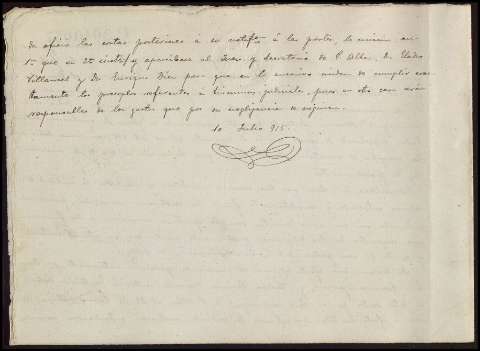 de oficio las costas posteriores á su notifn á las partes, lo mismo en
1ª que en 2ª instª y apercibase al Juez y Secretario de
Villamiel y Dn Enrique Diez para que en lo sucesivo cuiden de cumplir
los preceptos referentes á términos judiciales, pues en otro caso serán
responsables de los gastos que por su negligencia se originen.
10 Julio 915.